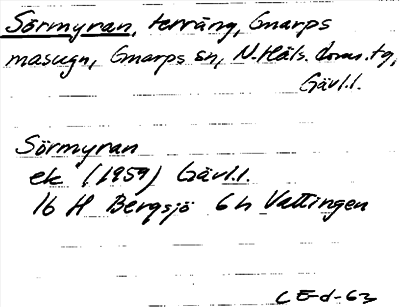 Sörmyran, terräng, Gnarps
masugn, Gnarps sn, N.Häls. doms.tg,
Gävl.l.
Sörmyran
ek (1959) Gävl.l.
16 H Bergsjö 6h Vattingen
CE-d-62